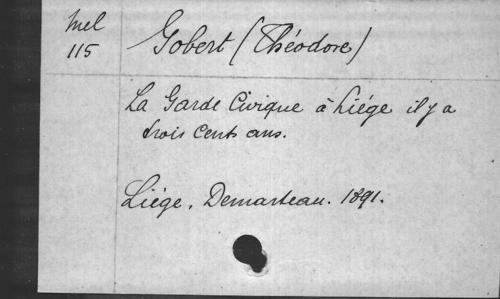 Mel
115
Gobert (Théodore)
La Garde Civique à Liége il y a
trois cents ans.
Liége. Demarteau. 1891.